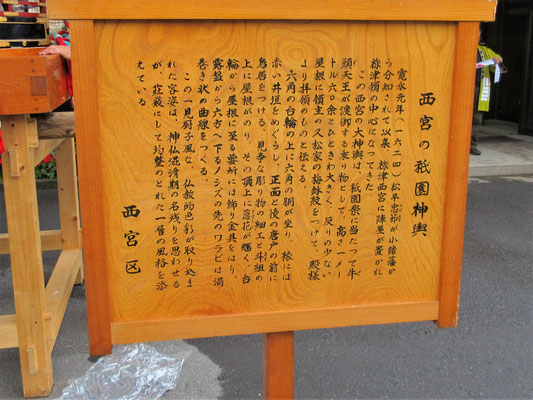 西宮の祇園神輿
寛永元年(一六二四)松平忠節が小諸藩か
ら分知されて以来、祢津西宮に陣屋が置かれ
祢津領の中心になってきた
この西宮の大神輿は、祇園祭に当たって牛
頭天王が渡御する乗り物として、高さ一メー
トル六〇余とひときわ大きく、反りの少ない
屋根に領主の久松家の梅鉢紋をつけて、殿様
より拝領のものと伝える。
六角の台輪の上に六角の胴が坐り、縁には
赤い井垣をめぐらし、正面と後の唐戸の前に
鳥居をつける。見事な彫り物の細工と斗栱の
上に屋根がのり、その頂上に蓮花が輝く。台
輪から屋根に至る要所には飾り金具をはり、
露盤から六方へ下るノシズの先のワラビは渦
巻き状の曲線をつくる。
この一見厨子風な、仏教的色彩が取り込ま
れた容姿は、神仏混淆期の名残りを思わせる
が、荘厳にして均整のとれた一層の風格を添
えている
西宮区